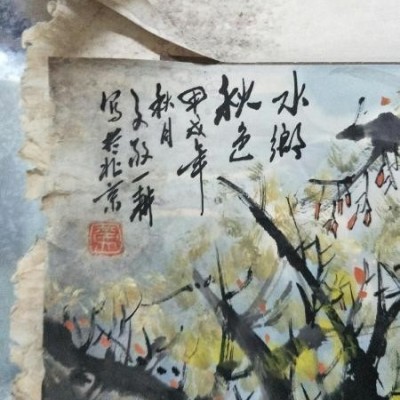 水鄉
秋色
甲戌年
秋月
一耕
寫於北京